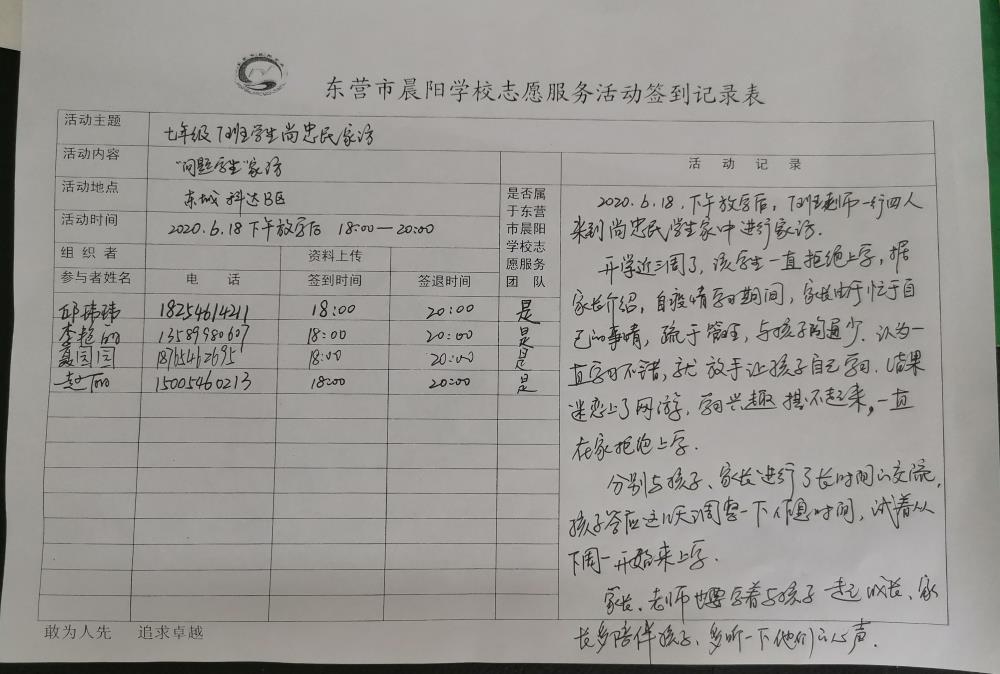 东营市晨阳学校志愿服务活动签到记录表
活动主题 七年级7班学生尚忠民家访
活动内容 "问题学生"家访
活动地点 东城科达B区
活动时间 2020.6.18下午放学后 18:00—20:00
组织者 资料上传
参与者姓名 电话 签到时间 签退时间
是否属
于东营
市晨阳
学校志
愿服务
团队
邱玮玮 18254614211 18:00 20:00 是
李艳丽 13589980607 18:00 20:00 是
聂园园 18765462695 18:00 20:00 是
赵丽 15005460213 18:00 20:00 是
活动记录
2020.6.18.下午放学后,7班老师一行四人
来到尚忠民学生家中进行家访.
开学近三周了,该学生一直拒绝上学,据
家长介绍,自疫情学习期间,家长由于忙于自
己的事情,疏于管理,与孩子沟通少.认为一
直学习不错,就放手让孩子自己学习.结果
迷恋上了网游,学习兴趣提不起来,一直
在家拒绝上学.
分别与孩子、家长进行了长时间的交流,
孩子答应这几天调整一下作息时间,试着从
下周一开始来上学.
家长、老师也要学着与孩子一起成长、家
长多陪伴孩子、多听一下他们的心声.
敢为人先 追求卓越